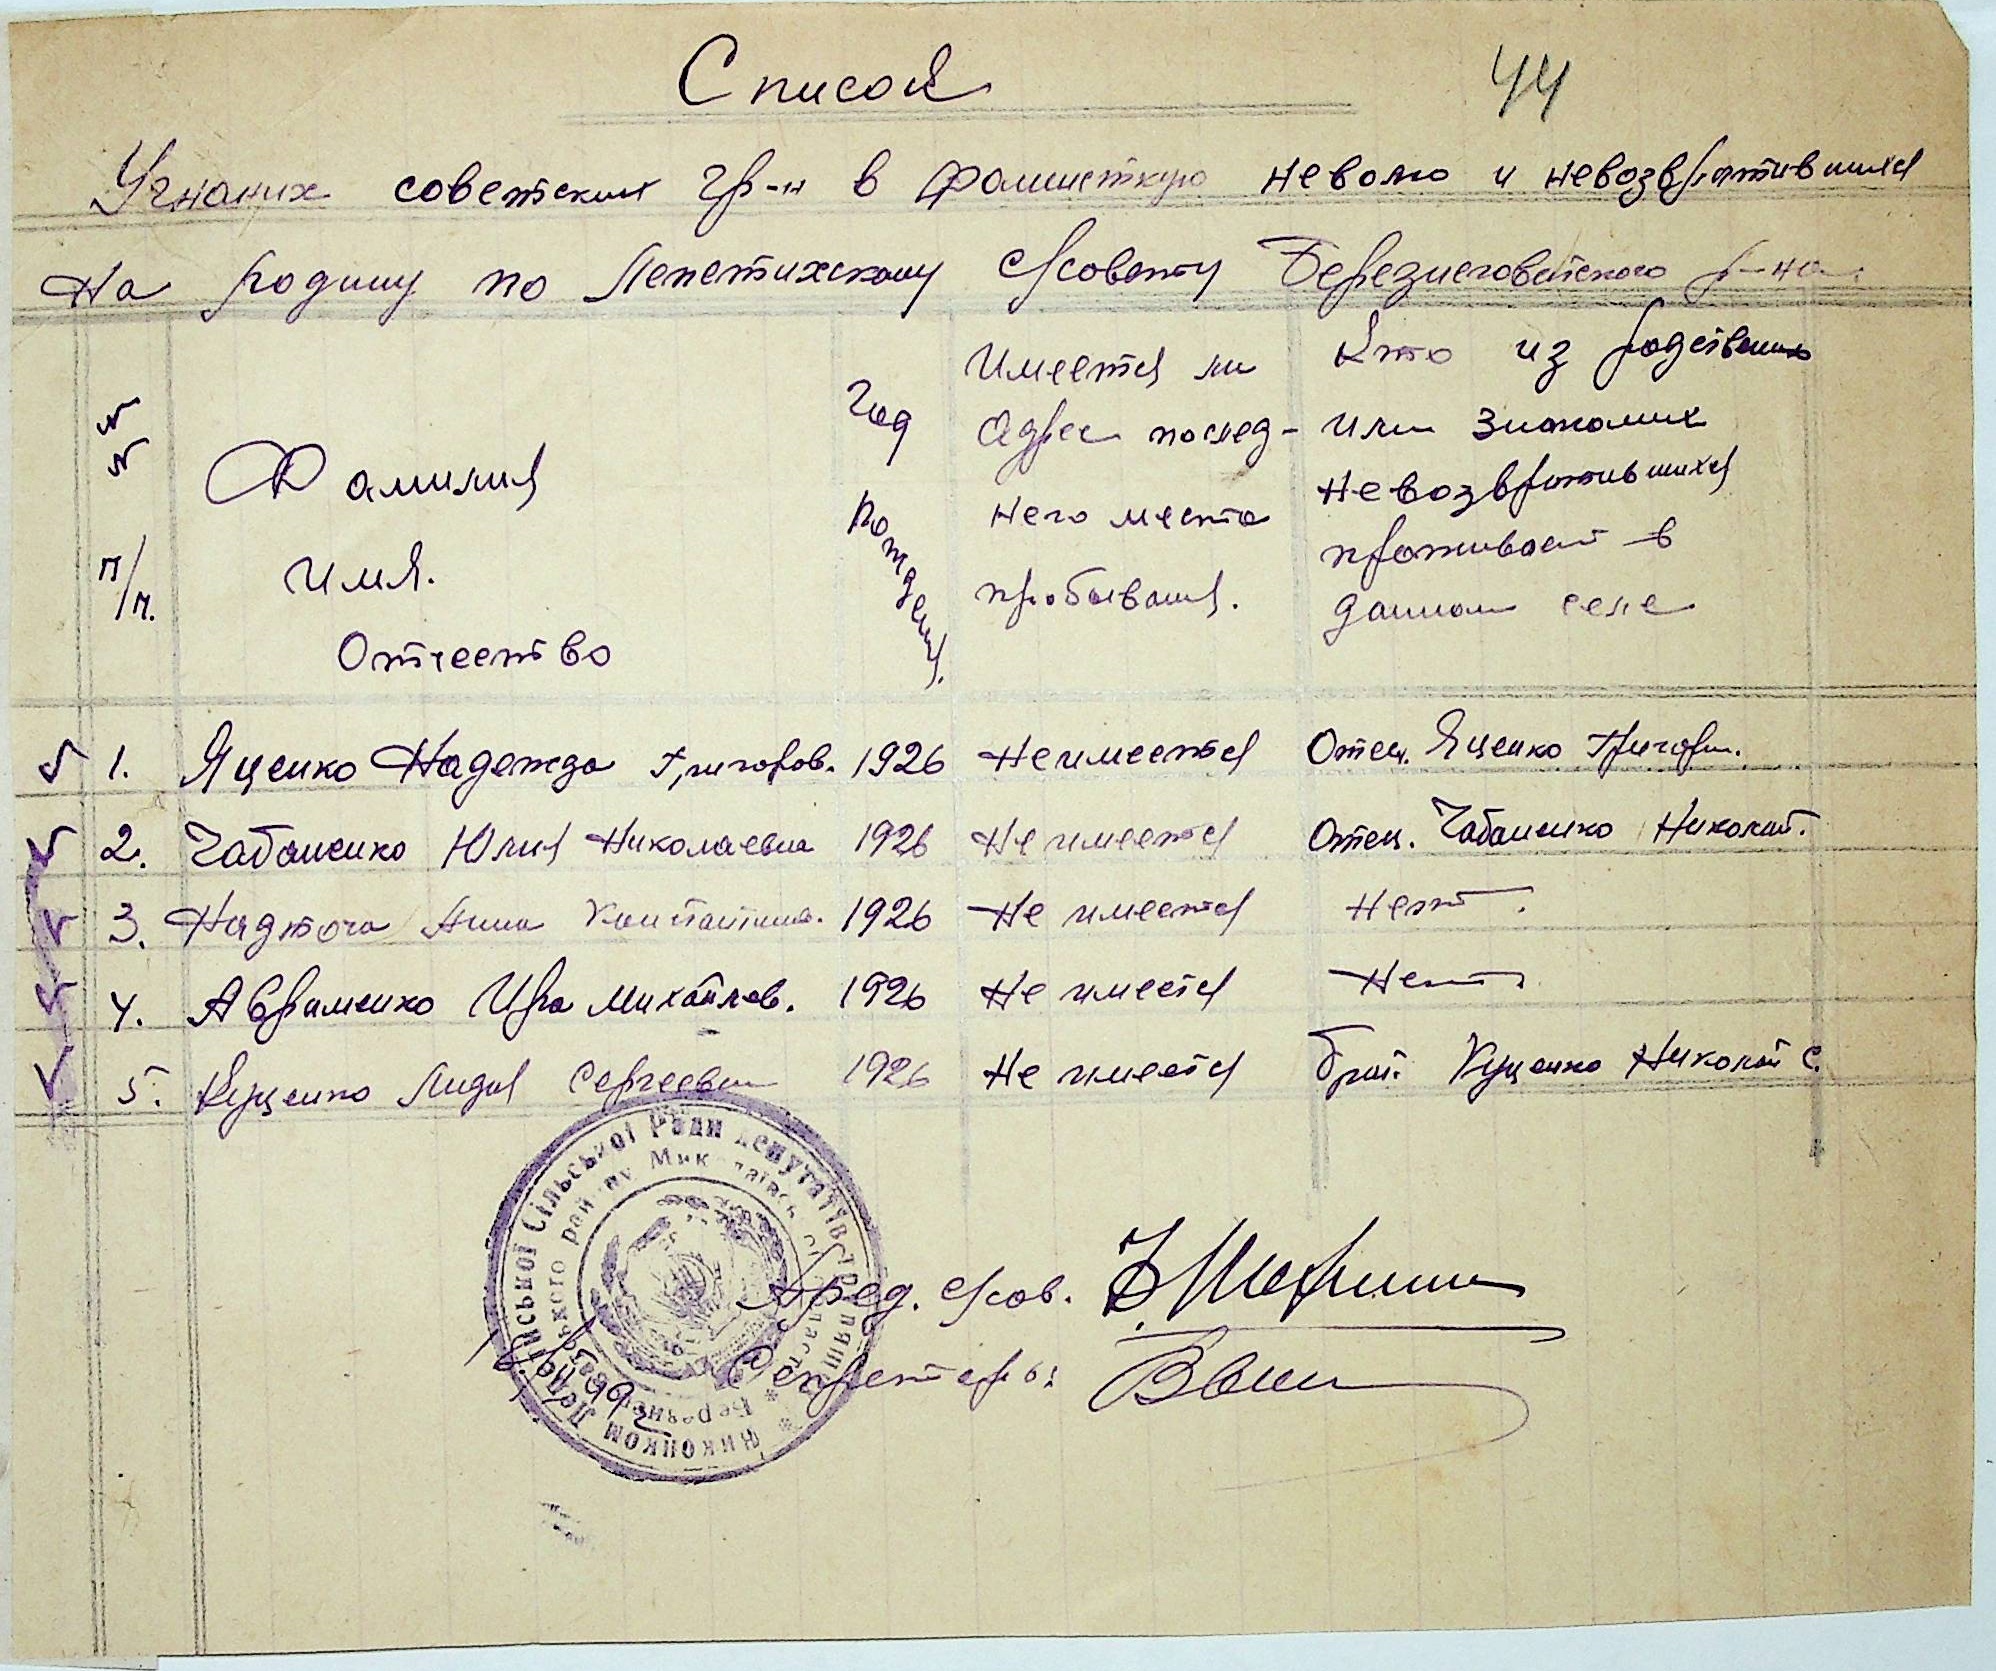 Список
44
Угнаних советских гр-н в фашисткую неволю и невозвратившихся
на родину по Лепетихскому с/совету Березнеговатского р-на.
№ № п/п.
Фамилия
Имя.
Отчество
Год рождения.
Имеется ли
адрес послед-
него места
пробывания.
Кто из родственик
или знакомих
невозвратившихся
проживает в
данном селе
1. Яценко Надежда Григоров. 1926 Не имеется Отец. Яценко Григори.
2. Чабаненко Юлия Николаевна 1926 Не имеется Отец. Чабаненко Николай.
3. Надточа Анна Константинов. 1926 Не имеется Нет.
4. Авраменко Ира Михайлов. 1926 Не имеется Нет.
5. Куценко Лидия Сергеевна 1926 Не имеется брат. Куценко Николай С.
Виконком Лепетиської Сільської Ради депутатів трудящ
Березнегуватського району Миколаївської області
Пред. с/сов.
Секретарь: